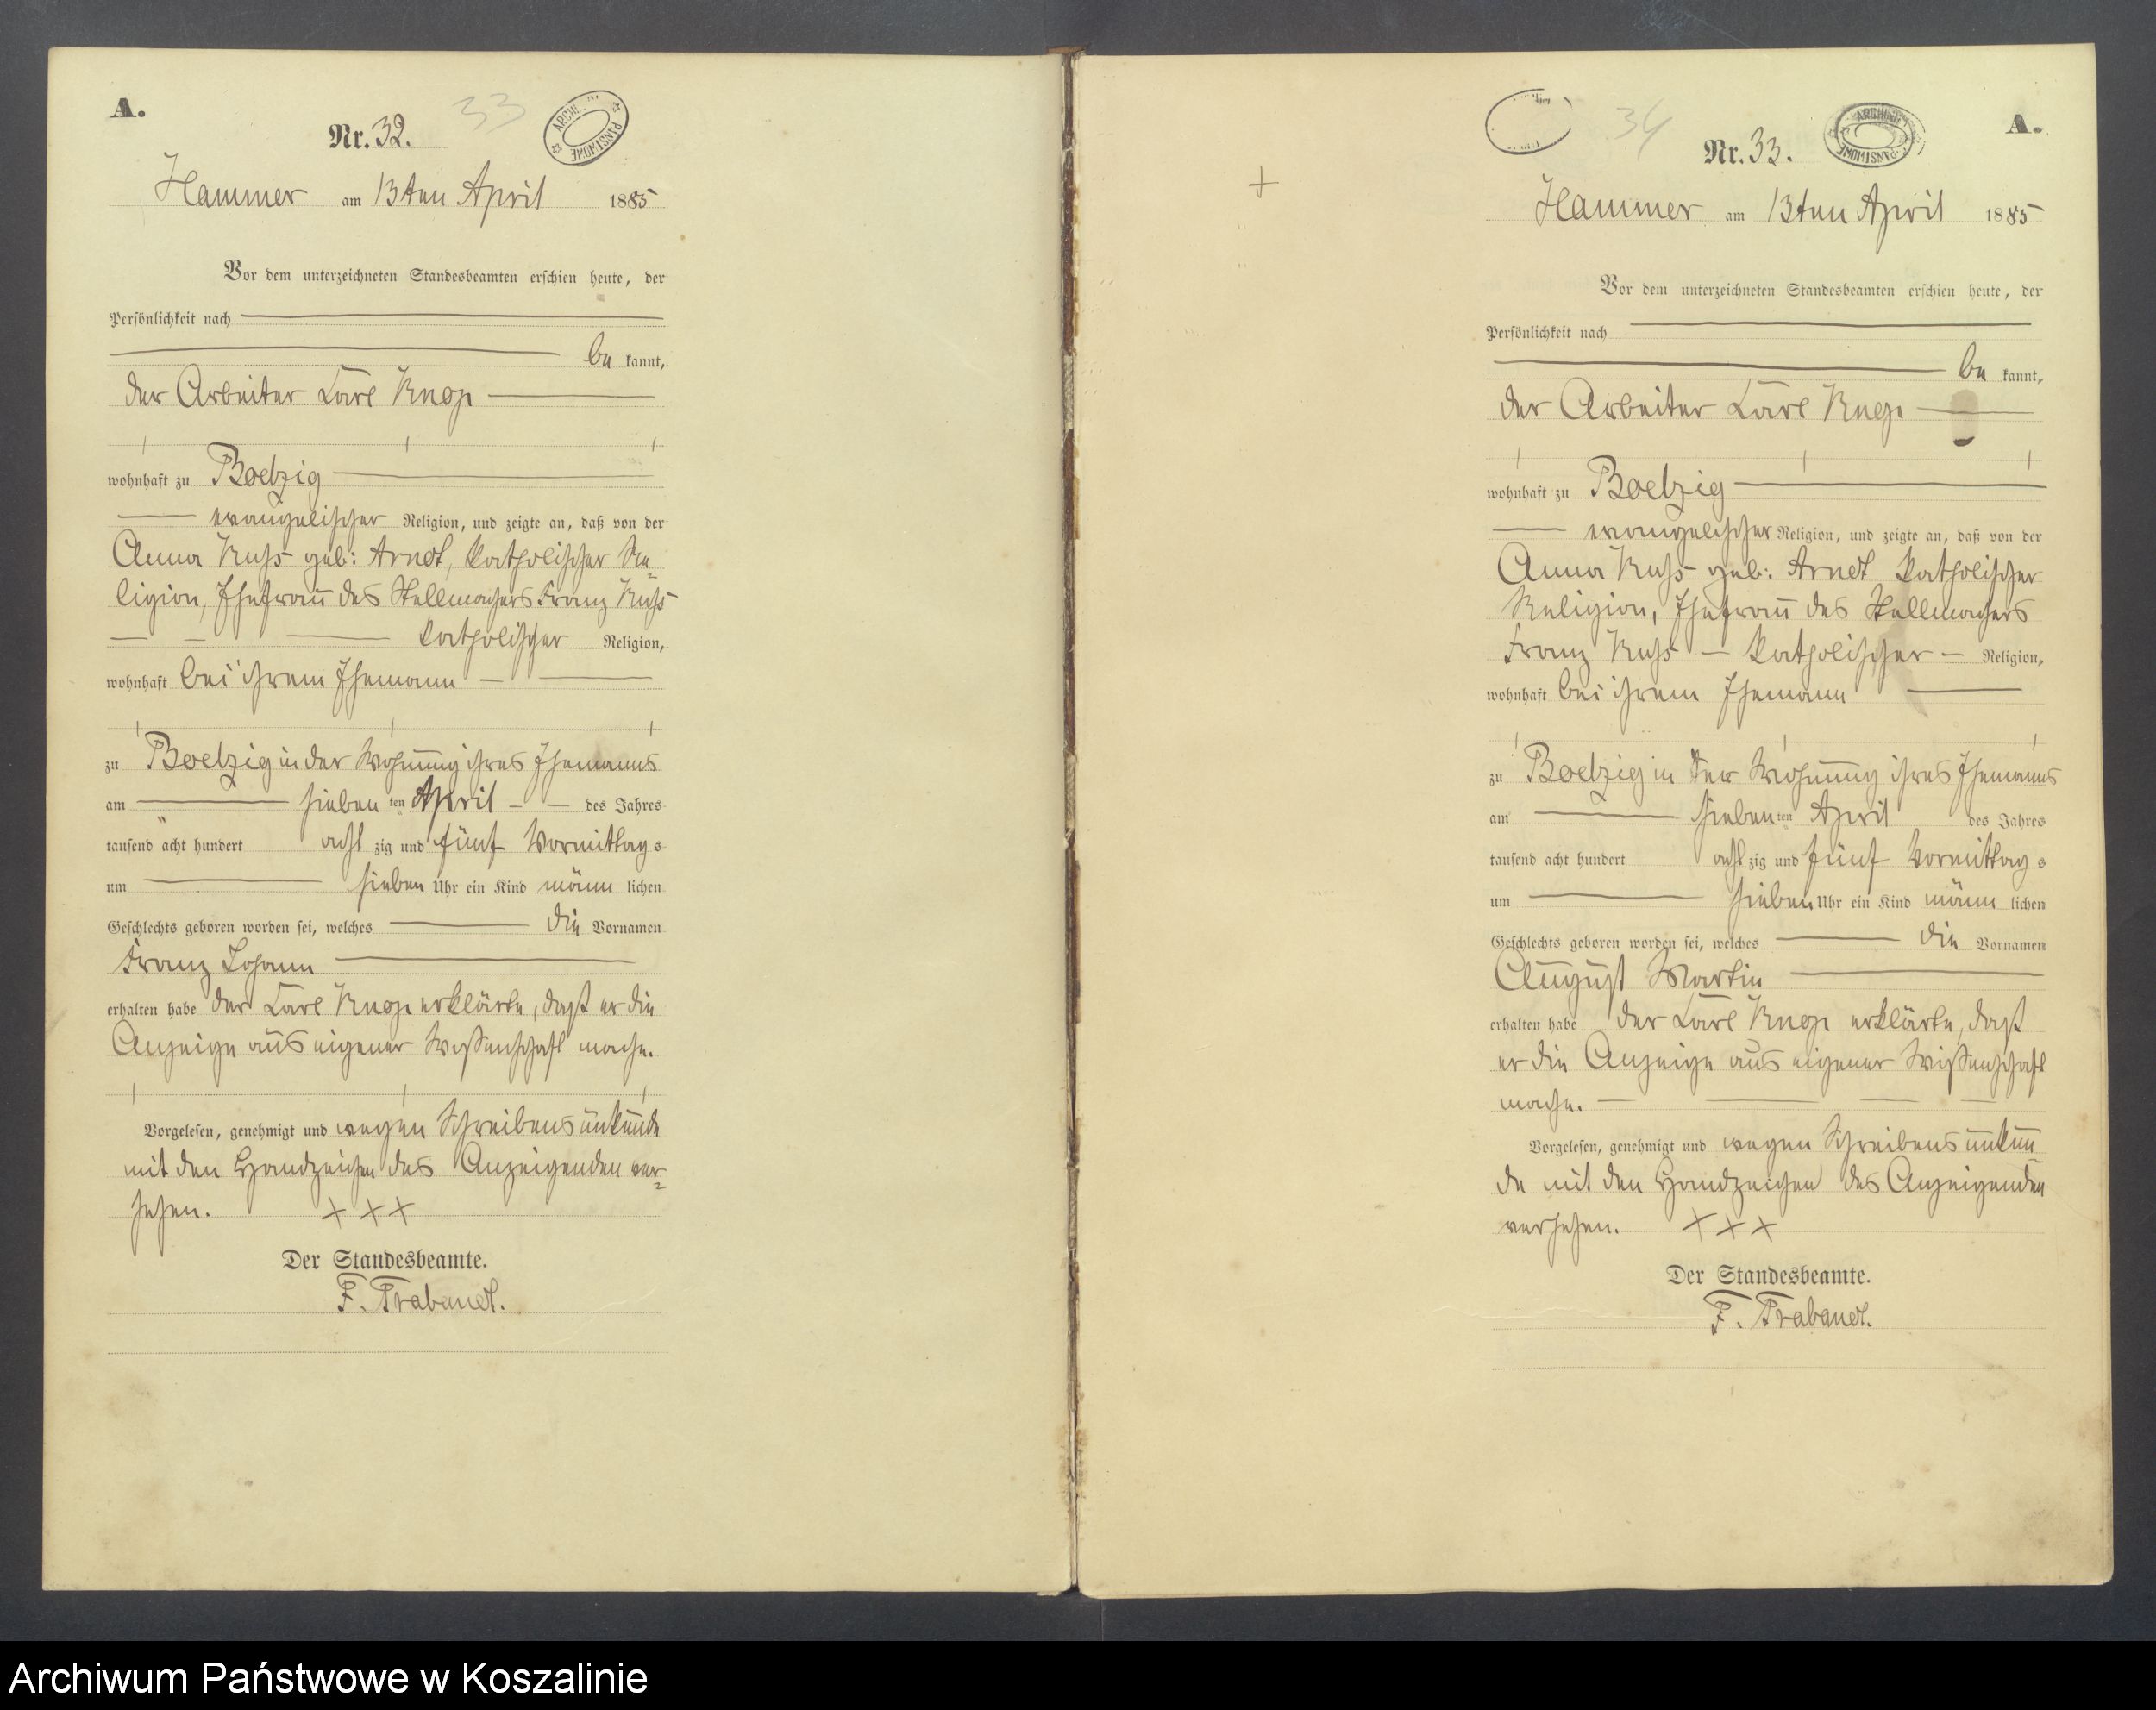 A.
33
Nr. 32.
ARCHI
PAŃSTWOWE
Hammer am 13ten April 1885
Vor dem unterzeichneten Standesbeamten erschien heute, der
Persönlichkeit nach
be kannt,
der Arbeiter Carl Knop
wohnhaft zu Boelzig
evangelischer Religion, und zeigte an, daß von der
Anna Kuss geb: Arndt, katholischer Re=
ligion, Ehefrau des Stellmachers Franz Kuss
katholischer Religion,
wohnhaft bei ihrem Ehemann
zu Boelzig in der Wohnung ihres Ehemanns
am sieben ten April des Jahres
tausend acht hundert acht zig und fünf Vormittag s
um sieben Uhr ein Kind männ lichen
Geschlechts geboren worden sei, welches die Vornamen
Franz Johann
erhalten habe der Carl Knop erklärte, daß er die
Anzeige aus eigener Wissenschaft mache.
Vorgelesen, genehmigt und wegen Schreibensunkunde
mit den Handzeichen des Anzeigenden ver=
sehen. + + +
Der Standesbeamte.
F. Trabandt.
34
A.
Nr. 33.
PAŃSTWOWE
+
Hammer am 13ten April 1885
Vor dem unterzeichneten Standesbeamten erschien heute, der
Persönlichkeit nach
be kannt,
der Arbeiter Carl Knop
wohnhaft zu Boelzig
evangelischer Religion, und zeigte an, daß von der
Anna Kuss geb: Arndt katholischer
Religion, Ehefrau des Stellmachers
Franz Kuss – katholischer – Religion,
wohnhaft bei ihrem Ehemann
zu Boelzig in der Wohnung ihres Ehemanns
am sieben ten April des Jahres
tausend acht hundert acht zig und fünf Vormittag s
um sieben Uhr ein Kind männ lichen
Geschlechts geboren worden sei, welches die Vornamen
August Martin
erhalten habe der Carl Knop erklärte, daß
er die Anzeige aus eigener Wissenschaft
mache.
Vorgelesen, genehmigt und wegen Schreibensunkun=
de mit den Handzeichen des Anzeigenden
versehen. + + +
Der Standesbeamte.
F. Trabandt.
Archiwum Państwowe w Koszalinie